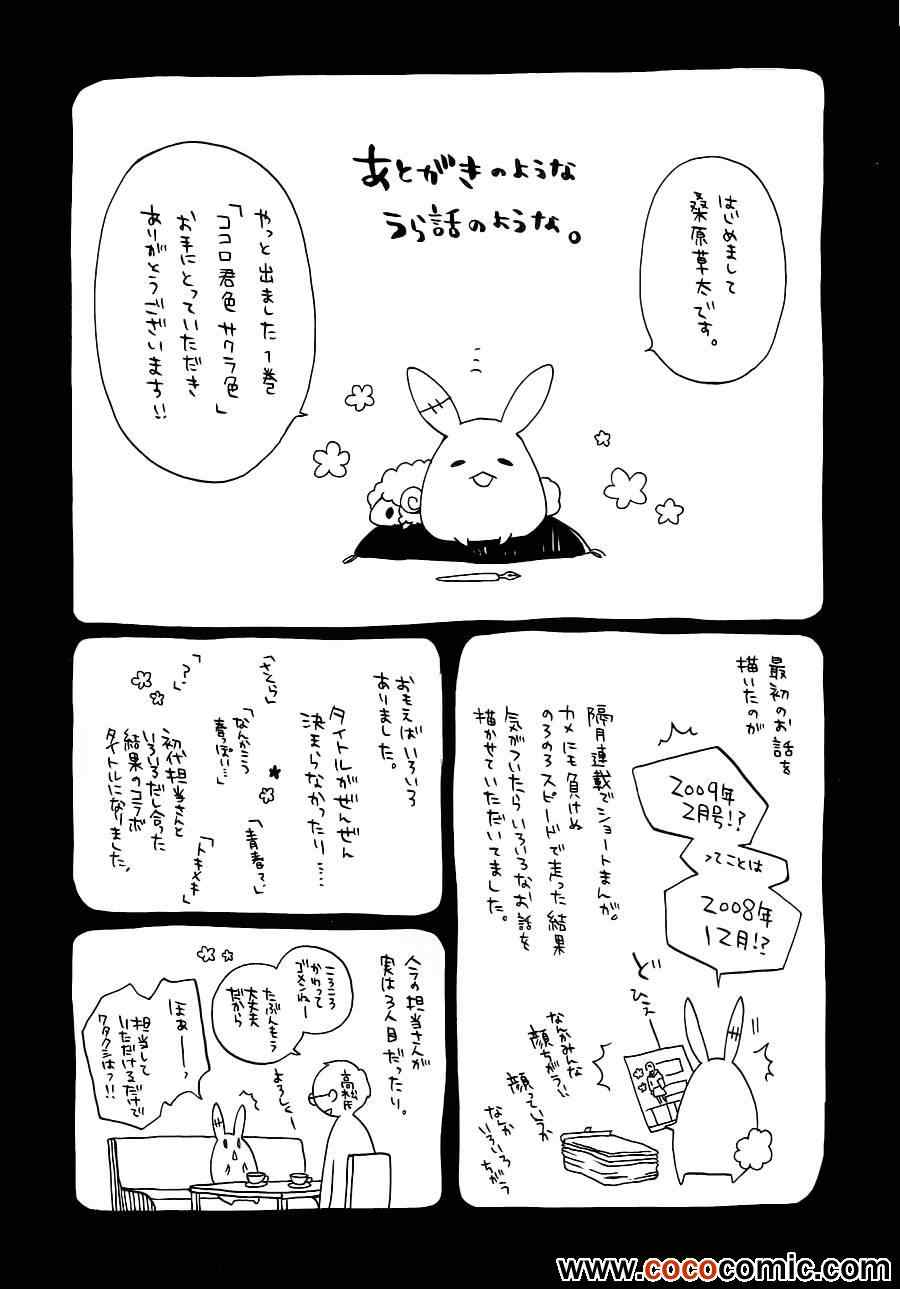 あとがきのような
うら話のような。
はじめまして
桑原草太です。
やっと出ました1巻
「ココロ君色サクラ色」
お手にとっていただき
ありがとうございます!!
最初のお話を
描いたのが
2009年
2月号!?
ってことは
2008年
12月!?
隔月連載でショートまんが。
カメにも負けぬ
のろのろスピードで走った結果
気がついたらいろいろなお話を
描かせていただいてました。
どひえー
なんかみんな
顔ちがう!!
顔っていうか
なんか
いろいろ
ちがう
おもえばいろいろ
ありました。
タイトルがぜんぜん
決まらなかったり……
「さくら」
「?」
「なんかこう
春っぽい…」
「青春て」
「トキメキ」
初代担当さんと
いろいろだし合った
結果のコラボ
タイトルになりました。
今の担当さんが
実は3人目だったり。
ころころ
かわって
ゴメンねー
たぶんもう
大丈夫
だから
よろしくー
高松氏
ほぁーっ
担当して
いただけるだけで
ワタクシはっ!!
www.cococomic.com